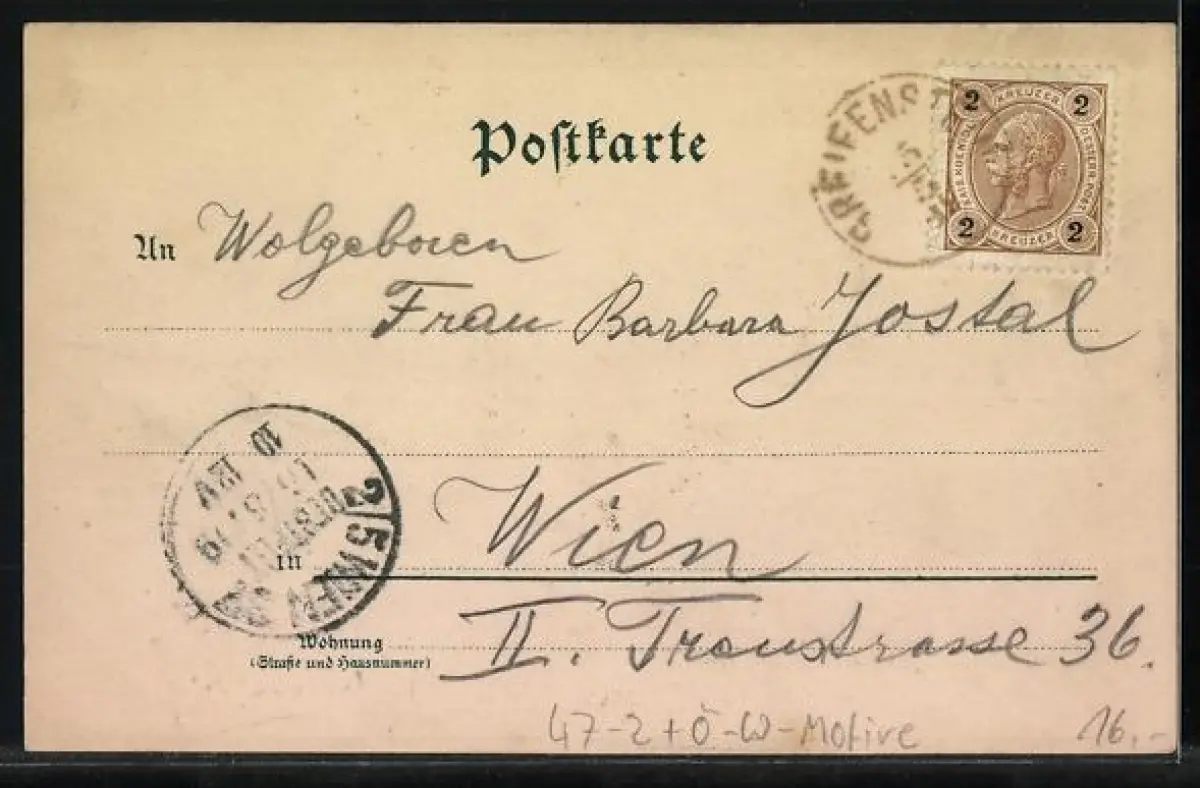 Postkarte
GREIFENST
2 KREUZER 2
KAIS. KOENIGL. OESTERR. POST
2 KREUZER 2
An Wolgeboren
Frau Barbara Jostal
2/5 WIEN
10
in Wien
Wohnung
(Straße und Hausnummer)
II. Transtrasse 36.
47-2+Ö-W-Motive 16.-